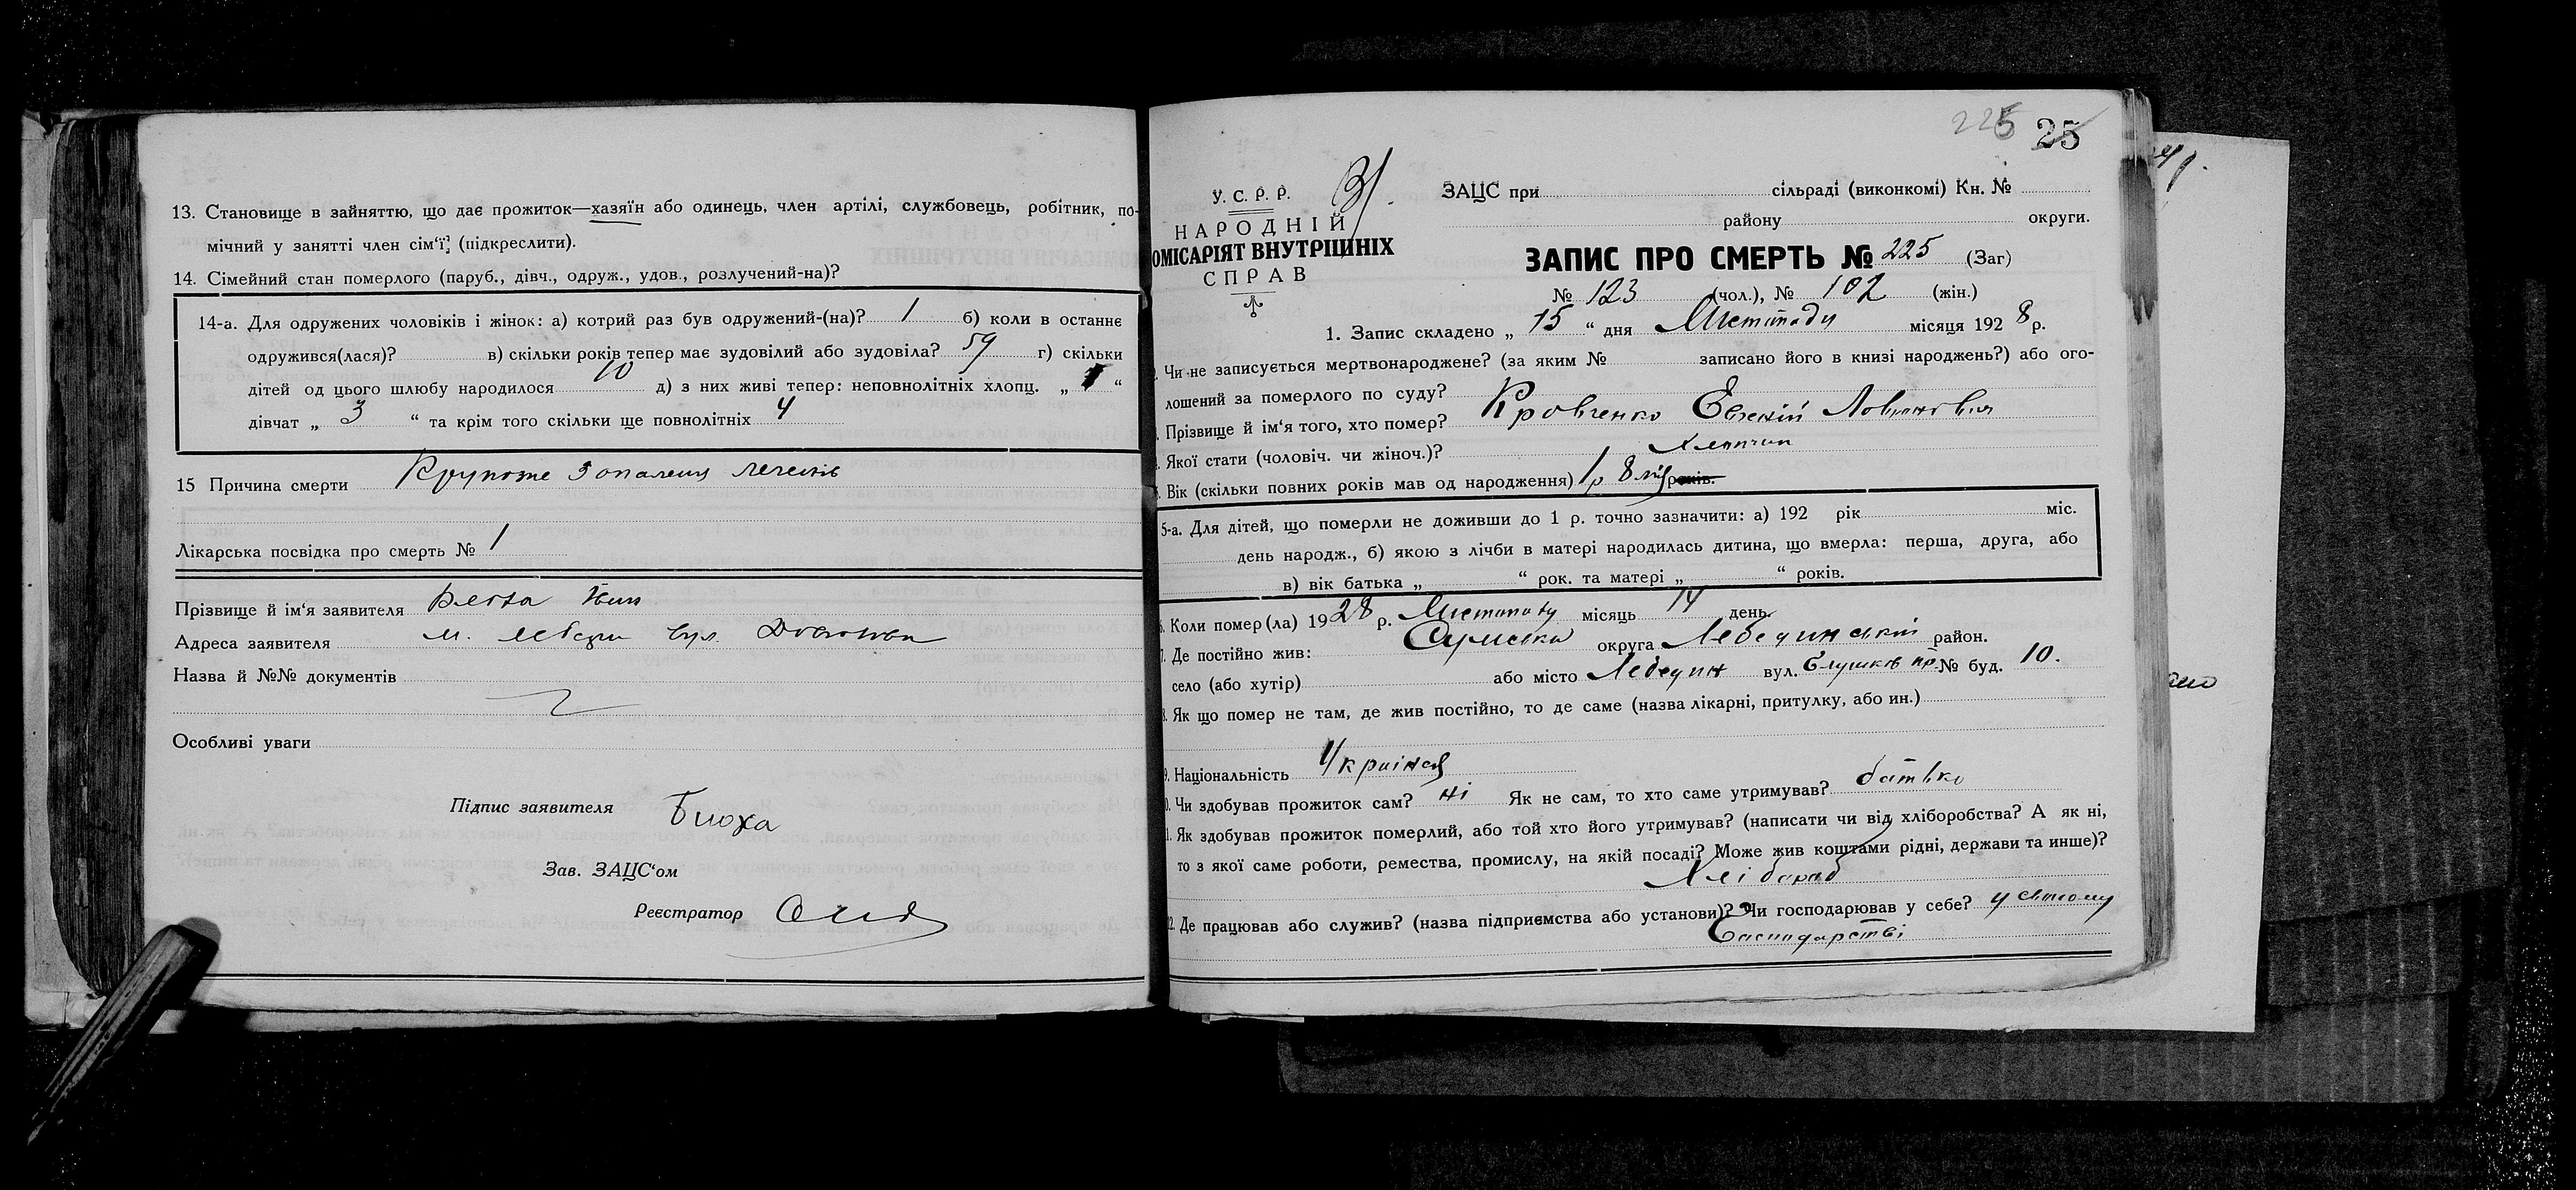 13. Становище в зайняттю, що дає прожиток—хазяїн або одинець, член артілі, службовець, робітник, по-
мічний у занятті член сім'ї (підкреслити).
14. Сімейний стан померлого (паруб., дівч., одруж., удов., розлучений-на)?
14-а. Для одружених чоловіків і жінок: а) котрий раз був одружений-(на)? 1 б) коли в останнє
одружився(лася)? в) скільки років тепер має зудовілий або зудовіла? 59 г) скільки
дітей од цього шлюбу народилося 10 д) з них живі тепер: неповнолітніх хлопц. „ “
дівчат „ 3 “ та крім того скільки ще повнолітніх 4
15 Причина смерти Крупозне запалення легенів
Лікарська посвідка про смерть № 1
Прізвище й ім'я заявителя
Адреса заявителя м. Лебедин вул.
Назва й №№ документів
Особливі уваги
Підпис заявителя Бюха
Зав. ЗАЦС'ом
Реєстратор
225 25
У. С. Р. Р. 31
НАРОДНІЙ
ОМІСАРІЯТ ВНУТРІШНІХ
СПРАВ
ЗАЦС при сільраді (виконкомі) Кн. №
району округи.
ЗАПИС ПРО СМЕРТЬ № 225 (Заг)
№ 123 (чол.), № 102 (жін.)
1. Запис складено „ 15 “ дня Листопаду місяця 1928 р.
Чи не записується мертвонароджене? (за яким № записано його в книзі народжень?) або ого-
лошений за померлого по суду?
Прізвище й ім'я того, хто помер? Кровченко Евгеній
Якої стати (чоловіч. чи жіноч.)? Хлопчик
Вік (скільки повних років мав од народження) 1 р 8 міс років.
5-а. Для дітей, що померли не доживши до 1 р. точно зазначити: а) 192 рік міс.
день народж., б) якою з лічби в матері народилась дитина, що вмерла: перша, друга, або
в) вік батька „ “ рок. та матері „ “ років.
6. Коли помер(ла) 1928 р. Листопаду місяць 14 день
7. Де постійно жив: Сумська округа Лебединський район.
село (або хутір) або місто Лебедин вул. № буд. 10.
8. Як що помер не там, де жив постійно, то де саме (назва лікарні, притулку, або ин.)
9. Національність Українец
0. Чи здобував прожиток сам? ні Як не сам, то хто саме утримував? батько
1. Як здобував прожиток померлий, або той хто його утримував? (написати чи від хліборобства? А як ні,
то з якої саме роботи, ремества, промислу, на якій посаді? Може жив коштами рідні, держави та инше)?
Хлібороб
2. Де працював або служив? (назва підприємства або установи)? Чи господарював у себе? у своєму
Господарстві